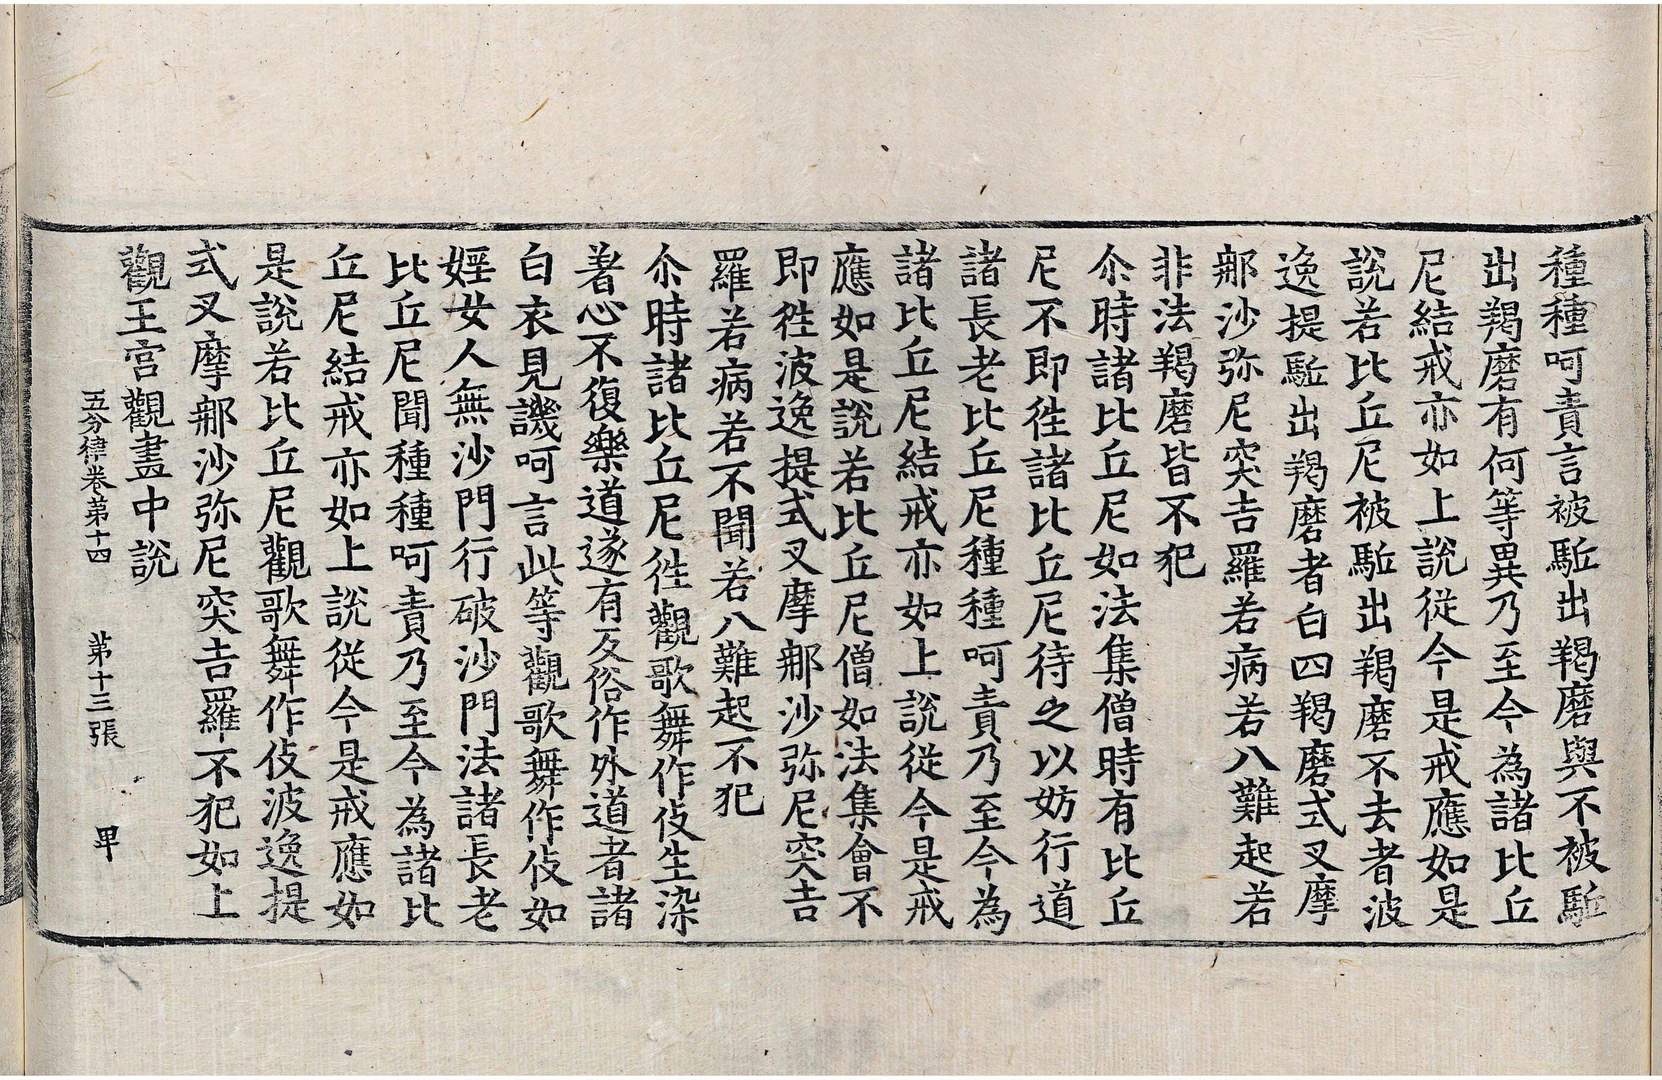 種種呵責言被駈出羯磨與不被駈
出羯磨有何等異乃至今為諸比丘
尼結戒亦如上說從今是戒應如是
說若比丘尼被駈出羯磨不去者波
逸提駈出羯磨者白四羯磨式叉摩
郍沙弥尼突吉羅若病若八難起若
非法羯磨皆不犯
尒時諸比丘尼如法集僧時有比丘
尼不即徃諸比丘尼待之以妨行道
諸長老比丘尼種種呵責乃至今為
諸比丘尼結戒亦如上說從今是戒
應如是說若比丘尼僧如法集會不
即徃波逸提式叉摩郍沙弥尼突吉
羅若病若不聞若八難起不犯
尒時諸比丘尼徃觀歌舞作伎生染
著心不復樂道遂有反俗作外道者諸
白衣見譏呵言此等觀歌舞作伎如
婬女人無沙門行破沙門法諸長老
比丘尼聞種種呵責乃至今為諸比
丘尼結戒亦如上說從今是戒應如
是說若比丘尼觀歌舞作伎波逸提
式叉摩郍沙弥尼突吉羅不犯如上
觀王宮觀畫中說
五分律卷第十四 第十三張